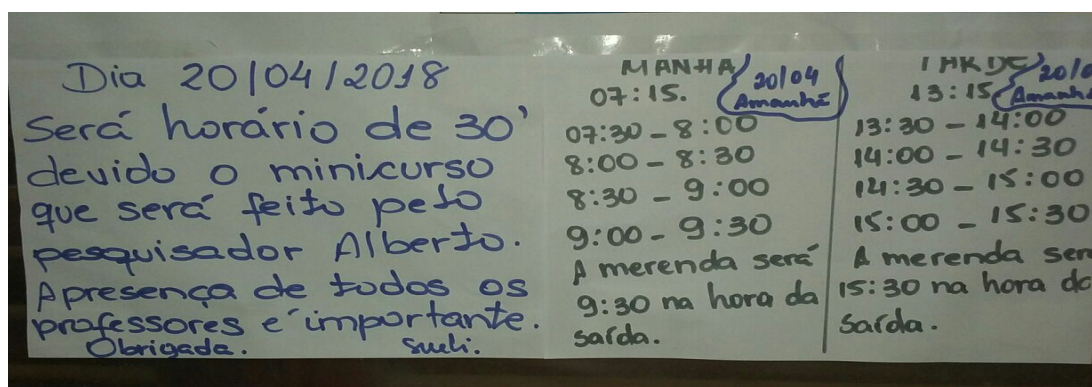 Dia 20/04/2018
Será horário de 30'
devido o minicurso
que será feito pelo
pesquisador Alberto.
A presença de todos os
professores é importante.
Obrigada. Sueli.
MANHÃ
20/04
Amanhã
07:15.
07:30 - 8:00
8:00 - 8:30
8:30 - 9:00
9:00 - 9:30
A merenda será
9:30 na hora da
saída.
TARDE
20/0
Amanhã
13:15
13:30 - 14:00
14:00 - 14:30
14:30 - 15:00
15:00 - 15:30
A merenda será
15:30 na hora da
saída.